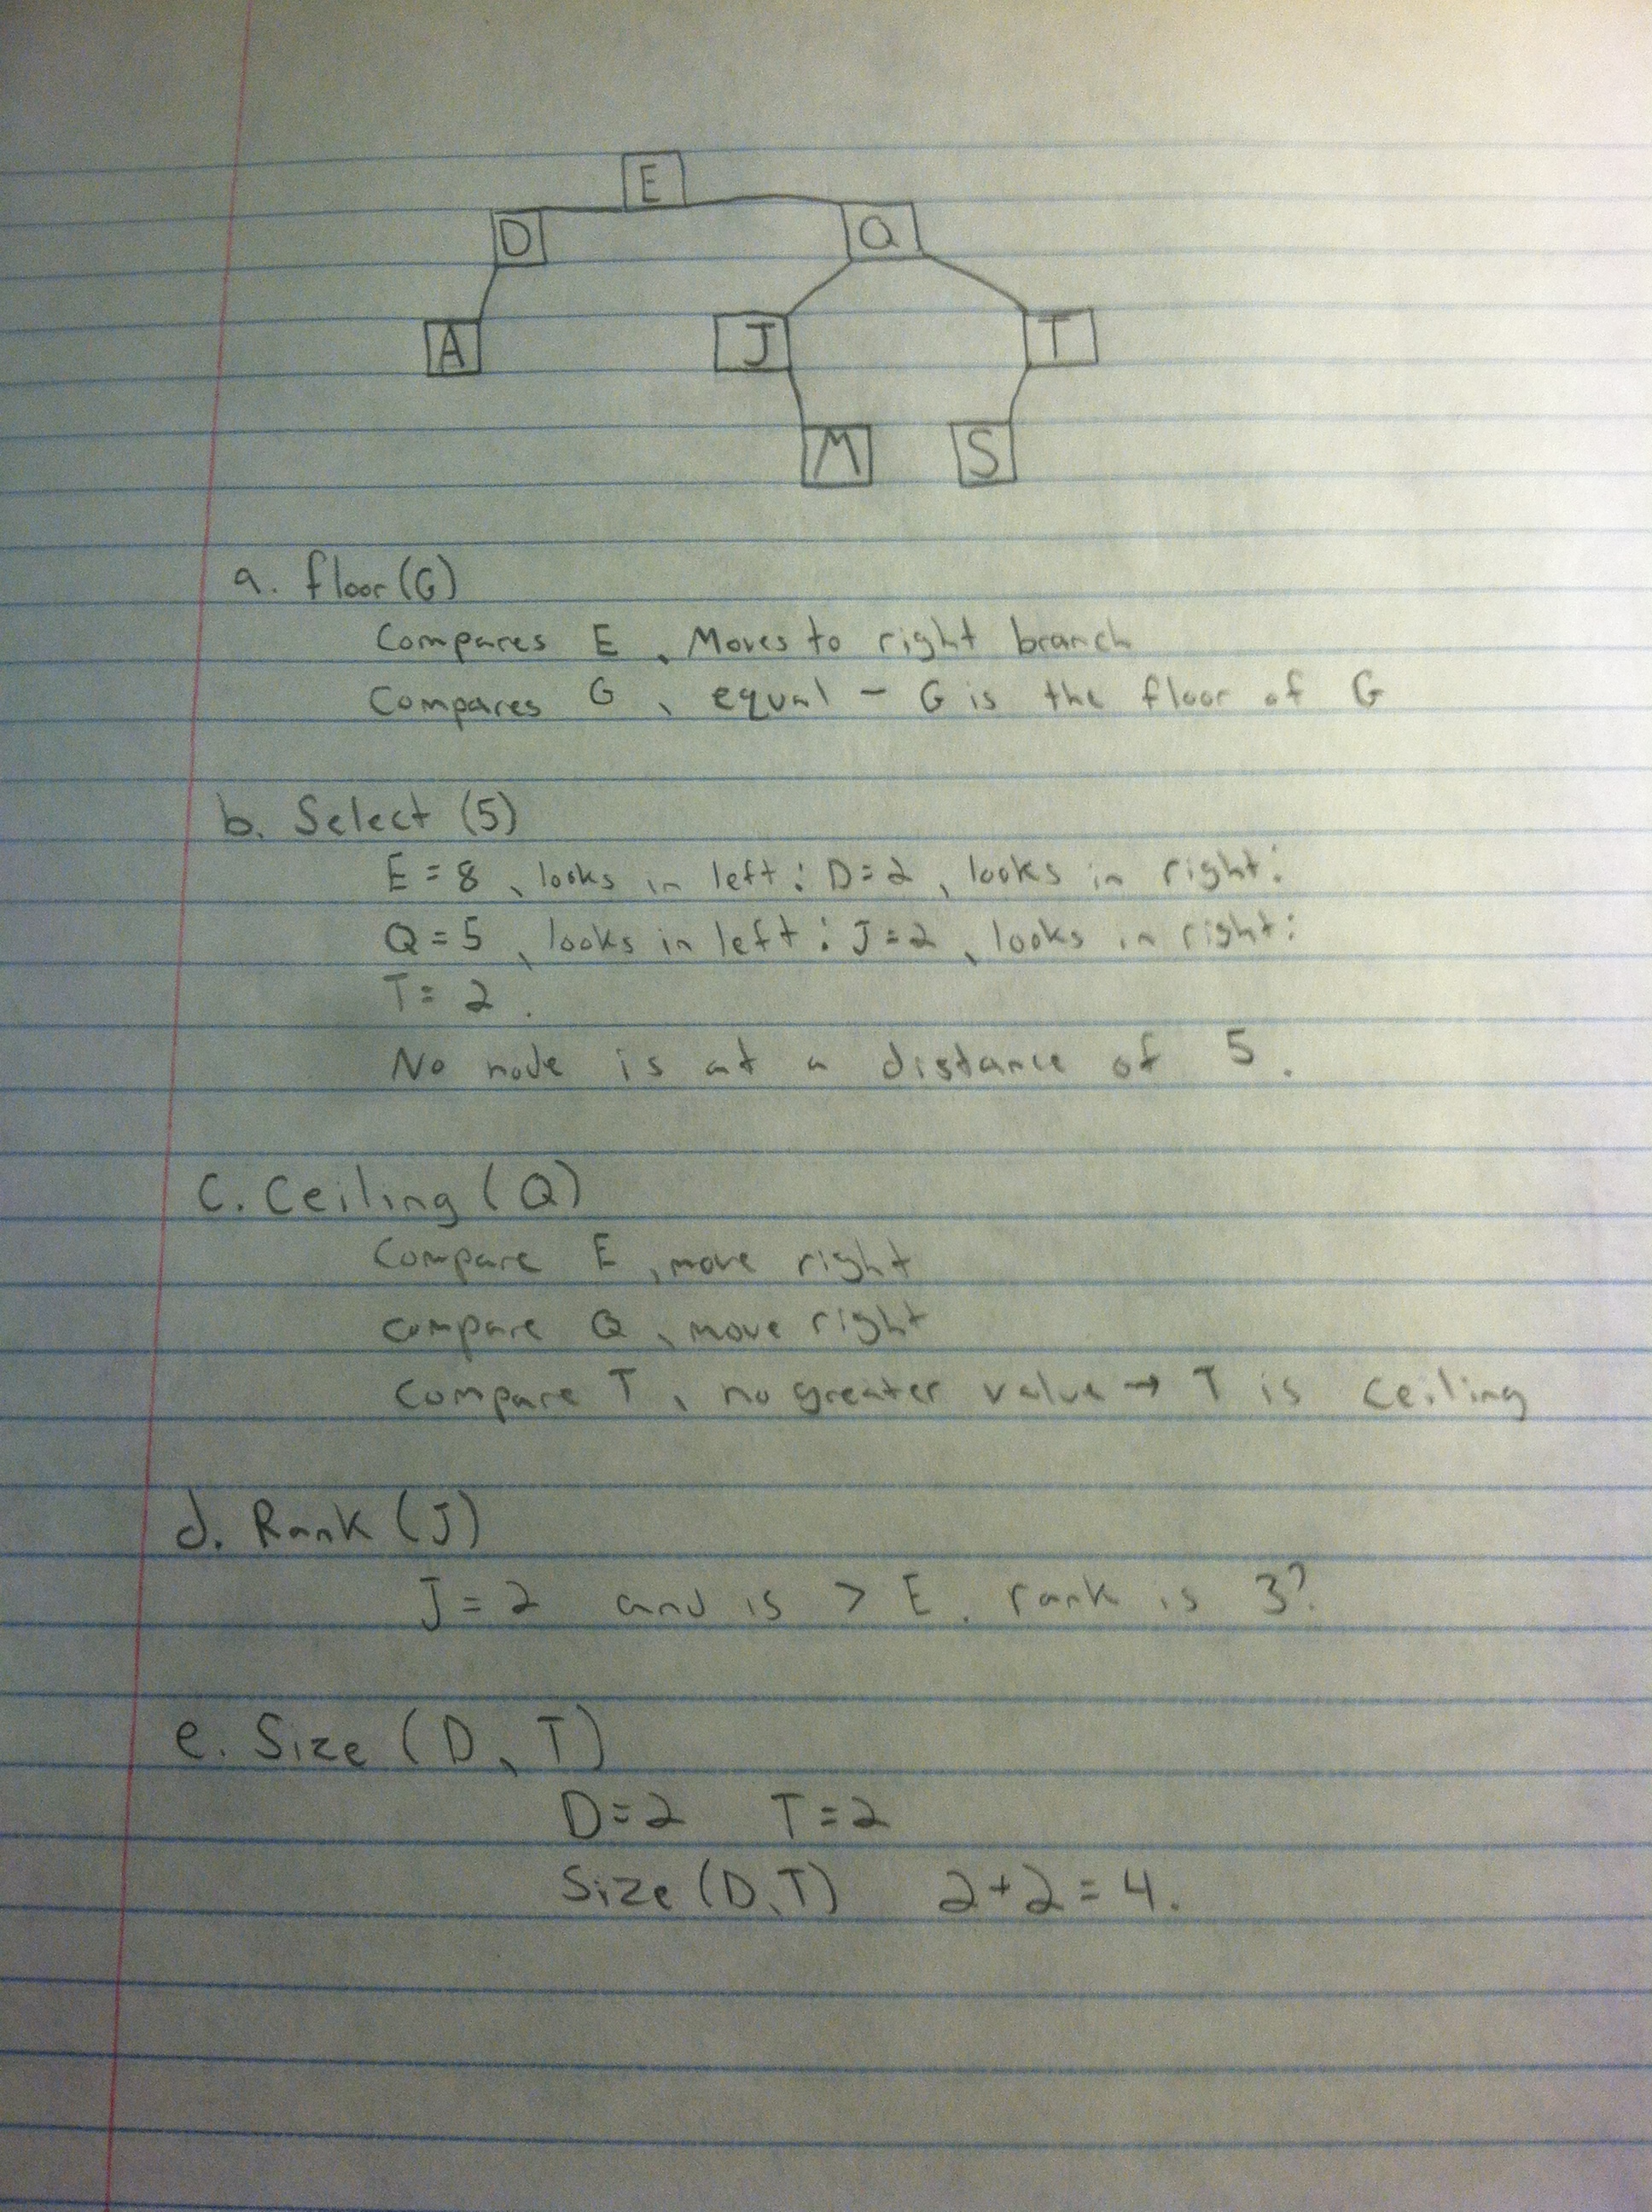 E
D Q
A J T
M S
a. floor (G)
Compares E, Moves to right branch
Compares G, equal - G is the floor of G
b. Select (5)
E = 8, looks in left: D=2, looks in right:
Q = 5, looks in left: J=2, looks in right:
T= 2.
No node is at a distance of 5.
C. Ceiling (Q)
Compare E, move right
compare Q, move right
compare T, no greater value → T is ceiling
d. Rank (J)
J=2 and is > E. rank is 3?
e. Size (D, T)
D=2 T=2
Size (D,T) 2+2=4.